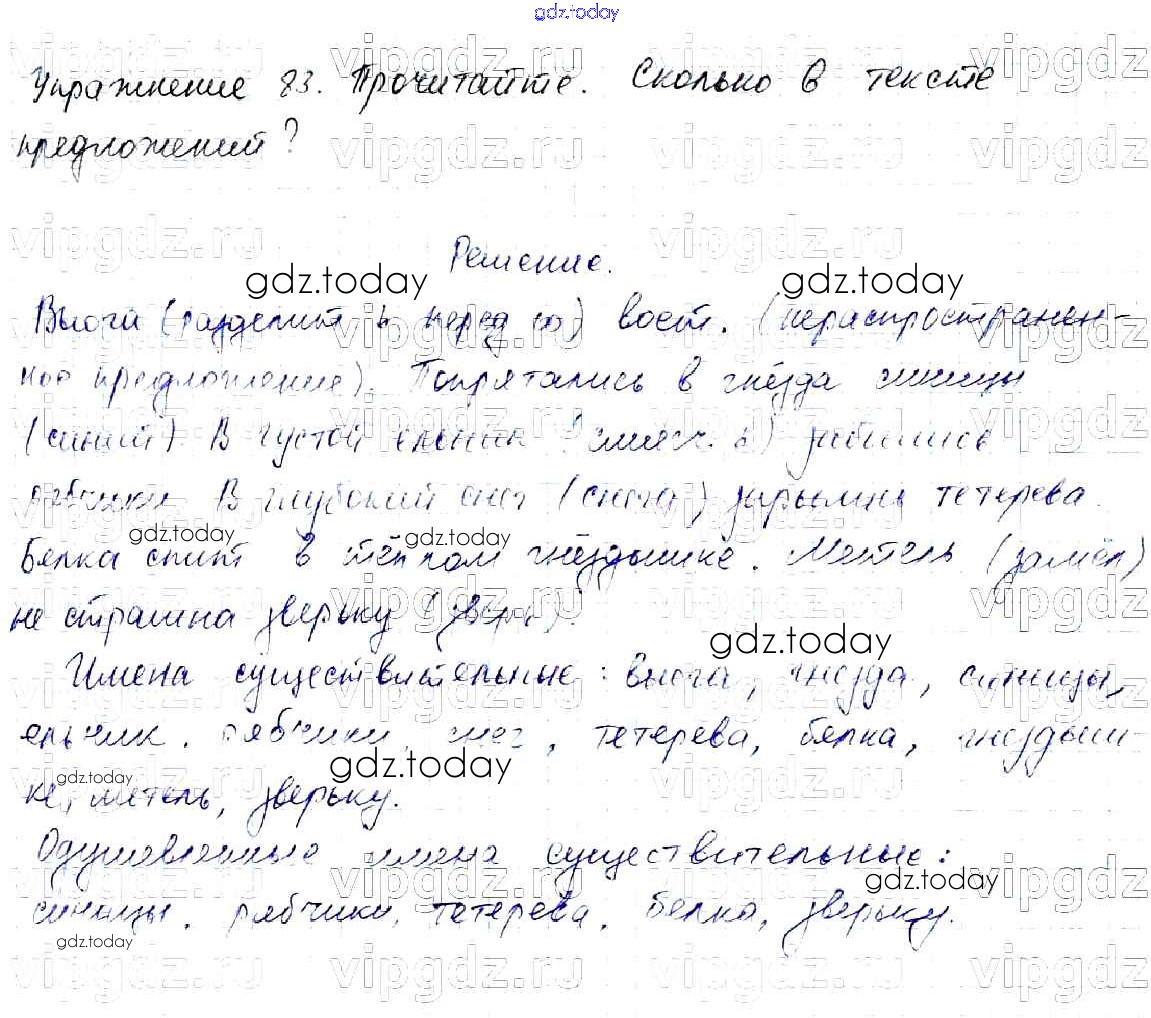 gdz.today
Упражнение 83. Прочитайте. Сколько в тексте
предложений?
Решение.
gdz.today
Вьюга (разделит ь перед ю) воет. (нераспространен-
ное предложение). Попрятались в гнёзда синицы
(синий). В густой ельник (смягч. ь) забились
рябчики. В глубокий снег (снега) зарылись тетерева.
gdz.today gdz.today
Белка спит в тёплом гнёздышке. Метель (замёл)
не страшна зверьку (зверь).
gdz.today
Имена существительные: вьюга, гнёзда, синицы,
ельник, рябчики, снег, тетерева, белка, гнёздыш-
gdz.today gdz.today
ке, метель, зверьку.
Одушевлённые имена существительные:
gdz.today
синицы, рябчики, тетерева, белка, зверьку.
gdz.today
vipgdz.ru